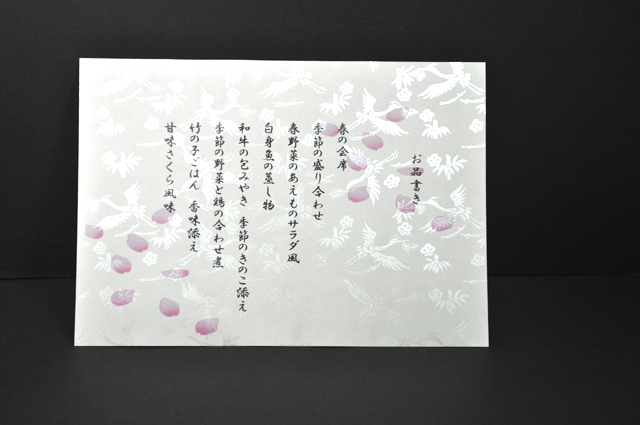 お品書き
春の会席
季節の盛り合わせ
春野菜のあえものサラダ風
白身魚の蒸し物
和牛の包みやき 季節のきのこ添え
季節の野菜と鶏の合わせ煮
竹の子ごはん 香味添え
甘味さくら風味